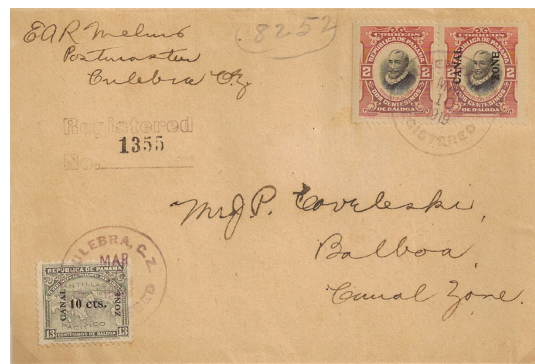 EAR Melwis
Postmaster
Culebra CZ
8252
CORREOS
REPUBLICA DE PANAMA
2 2
DOS CENTESIMOS
DE BALBOA
CANAL ZONE
CORREOS
REPUBLICA DE PANAMA
2 2
DOS CENTESIMOS
DE BALBOA
REGISTERED
Registered
1355
No.
Mr J. P. Koveleski,
Balboa
Canal Zone.
CULEBRA, C.Z.
MAR
REPUBLICA DE PANAMA
CANAL 10 cts. ZONE
13 13
CENTESIMOS DE BALBOA